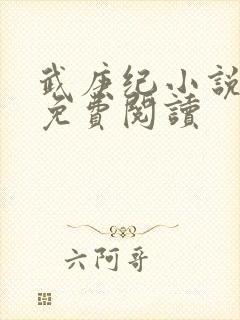 武庚纪小説
免費閱讀
六阿哥